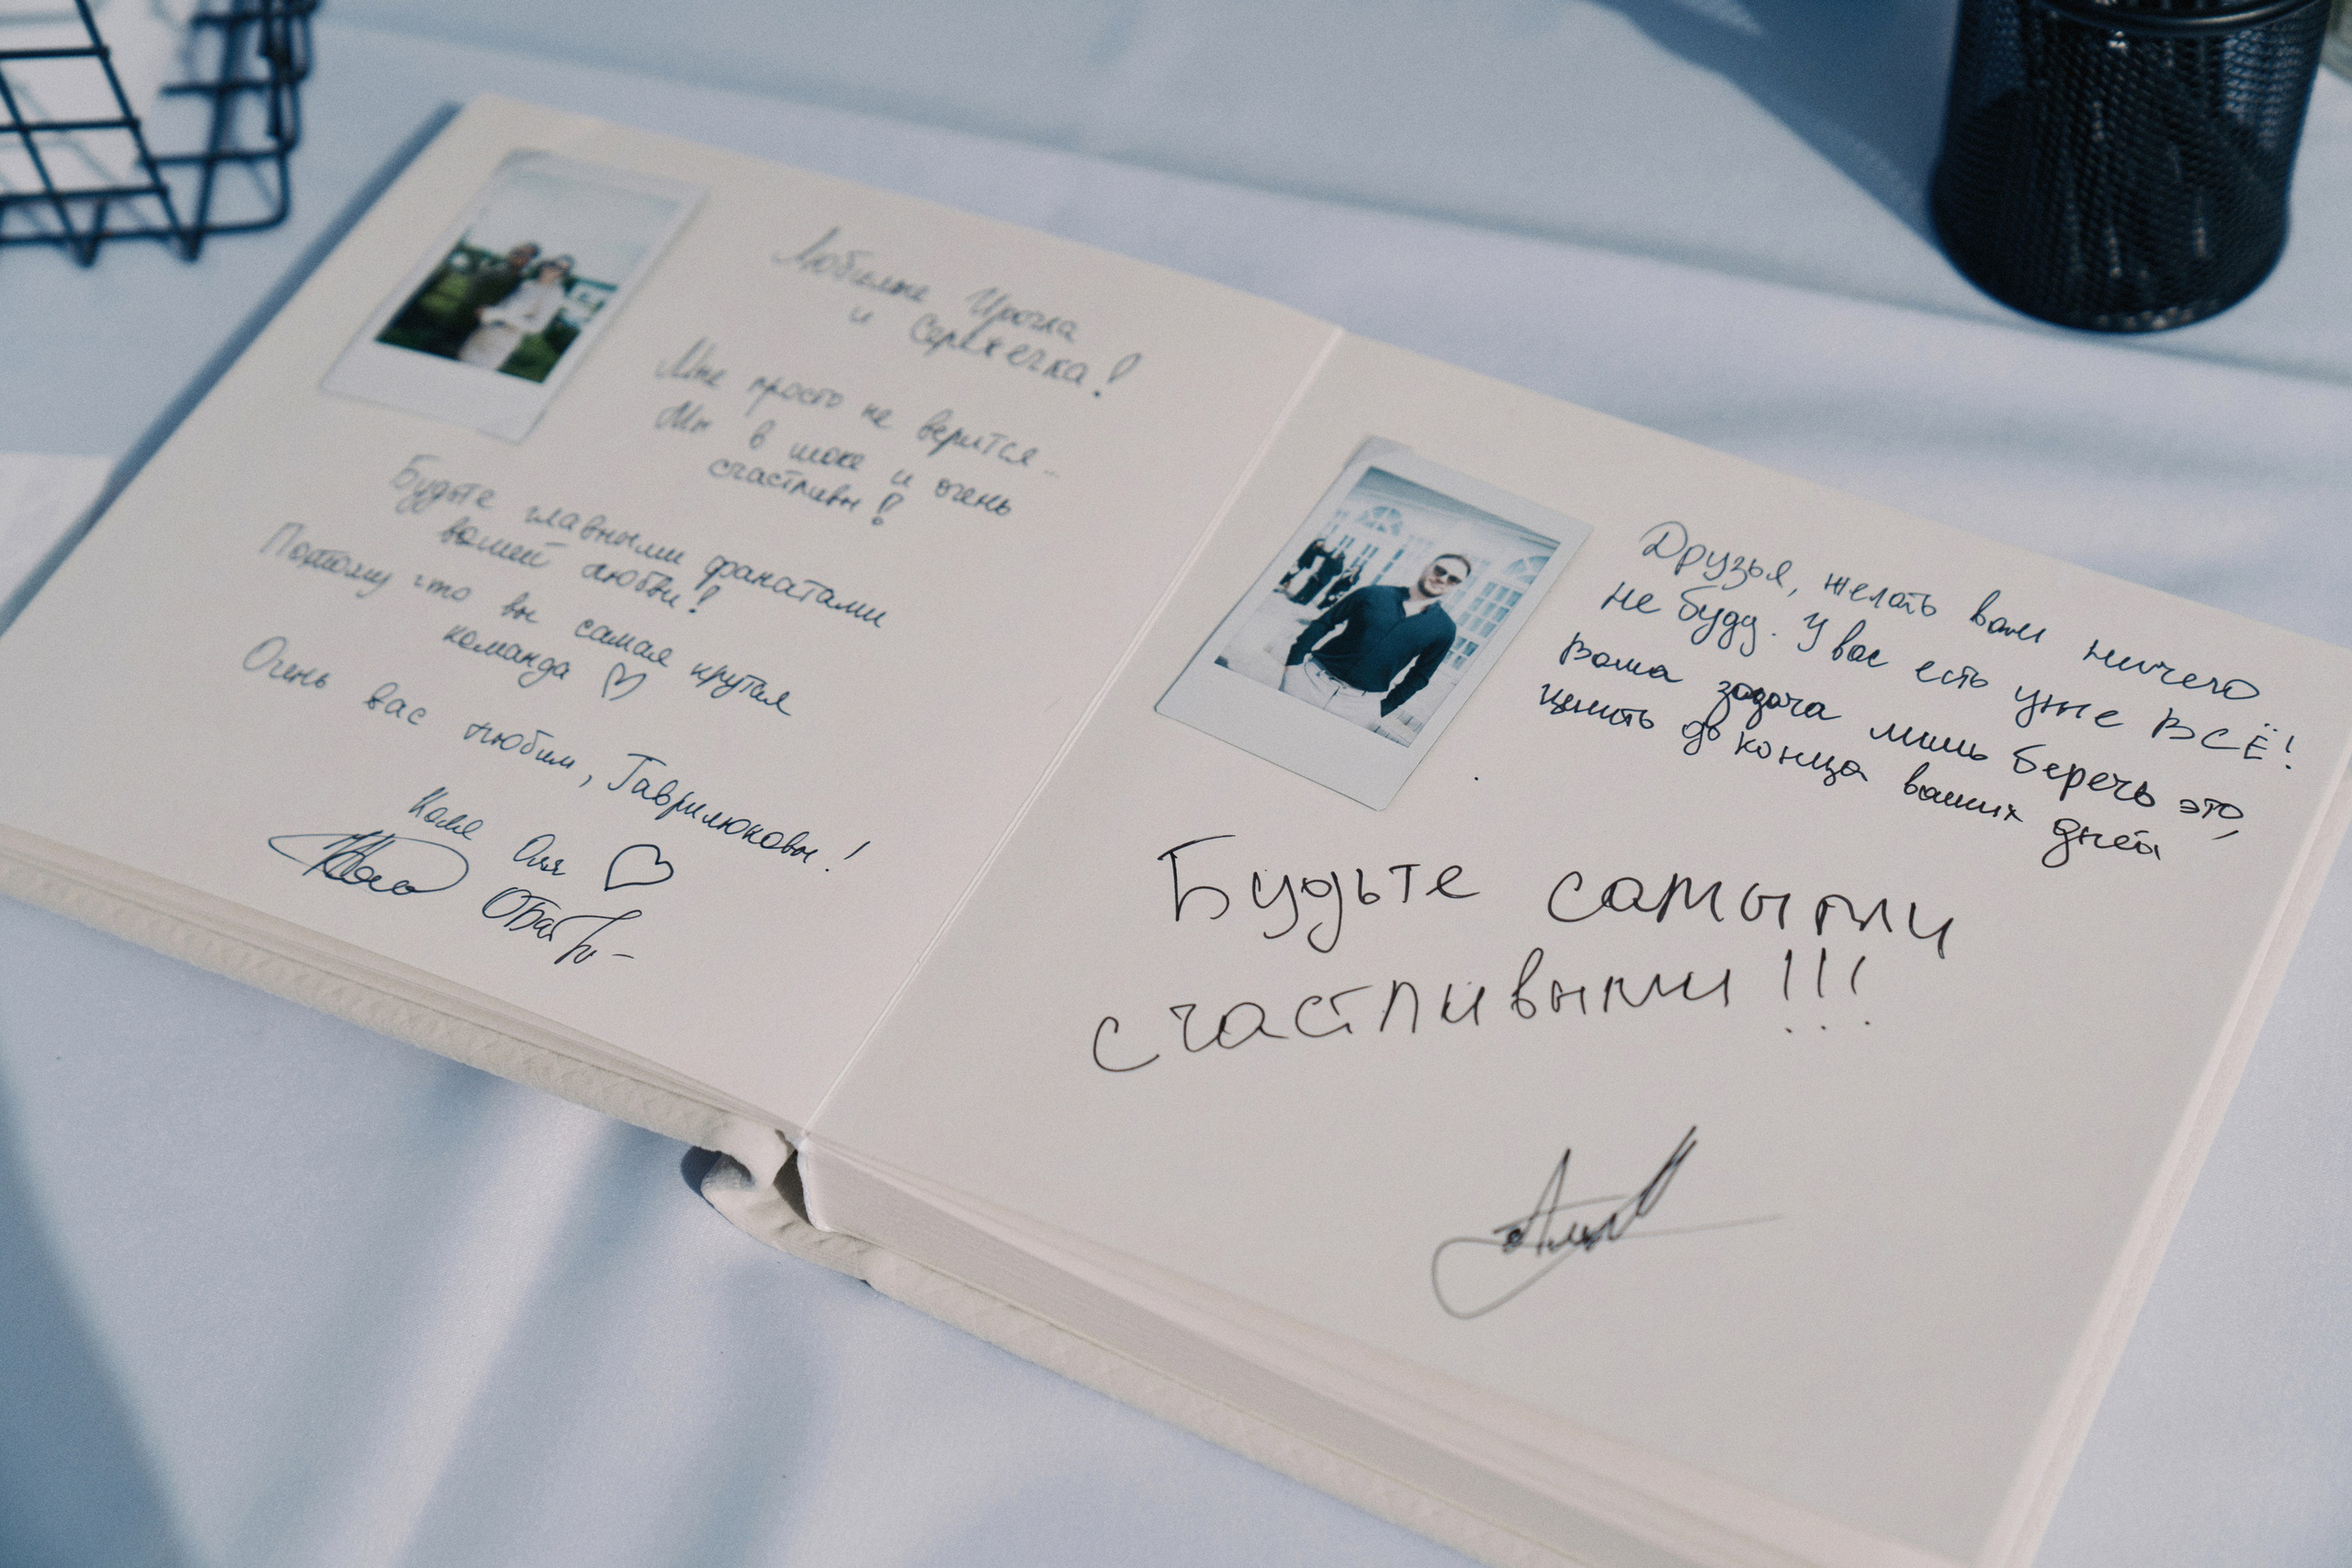 Любимые Ирочка
и Сережечка!
Мне просто не верится...
Мы в шоке и очень
счастливы!
Будьте главными фанатами
вашей любви!
Потому что вы самая крутая
команда
Очень вас любим, Гаврилюковы!
Коля Оля
Друзья, желать вам ничего
не буду. У вас есть уже ВСЁ!
Ваша задача лишь беречь это,
ценить до конца ваших дней
Будьте самыми
счастливыми!!!